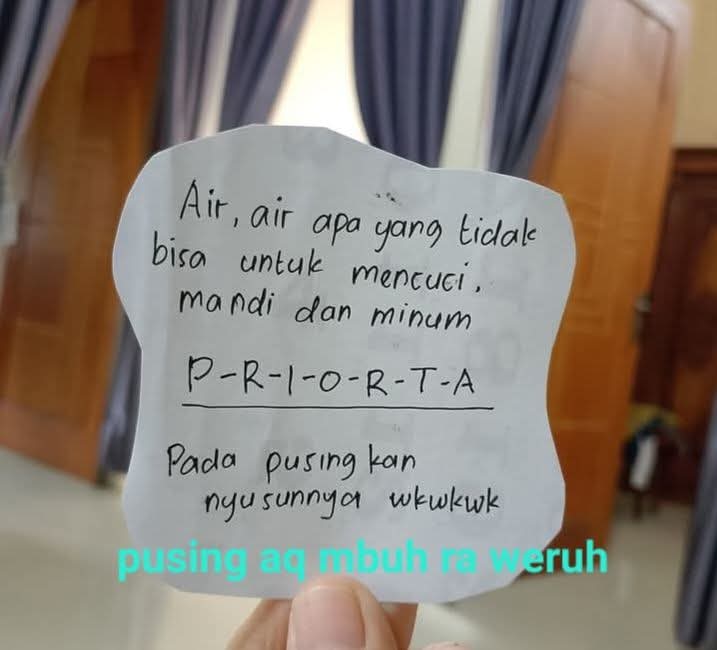 Air, air apa yang tidak
bisa untuk mencuci,
mandi dan minum
P-R-I-O-R-T-A
Pada pusing kan
nyusunnya wkwkwk
pusing aq mbuh ra weruh